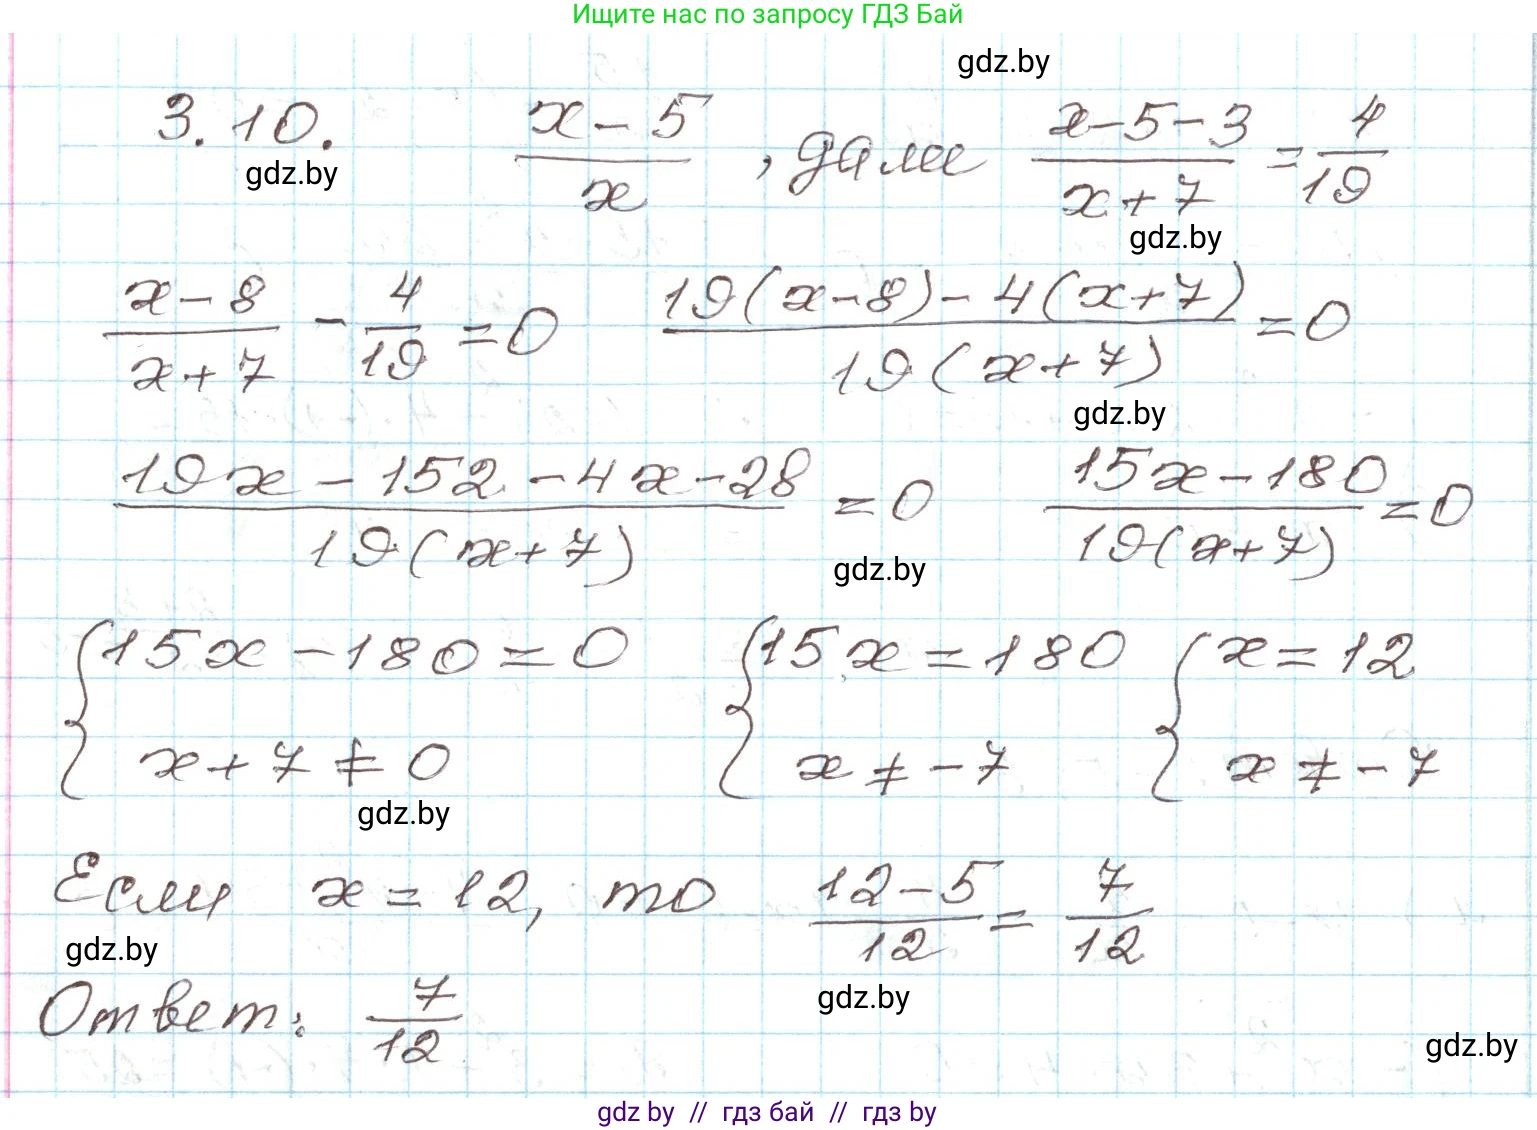 Ищите нас по запросу ГДЗ Бай
gdz.by
3.10. (x-5)/x, дали (x-5-3)/(x+7) = 4/19
gdz.by
gdz.by
(x-8)/(x+7) - 4/19 = 0 (19(x-8)-4(x+7))/(19(x+7)) = 0
gdz.by
(19x-152-4x-28)/(19(x+7)) = 0 (15x-180)/(19(x+7)) = 0
gdz.by
{15x-180=0 {15x=180 {x=12
x+7≠0 x≠-7 x≠-7
gdz.by
Если x=12, то (12-5)/12 = 7/12
gdz.by
gdz.by
Ответ: 7/12
gdz.by
gdz by // гдз бай // гдз by